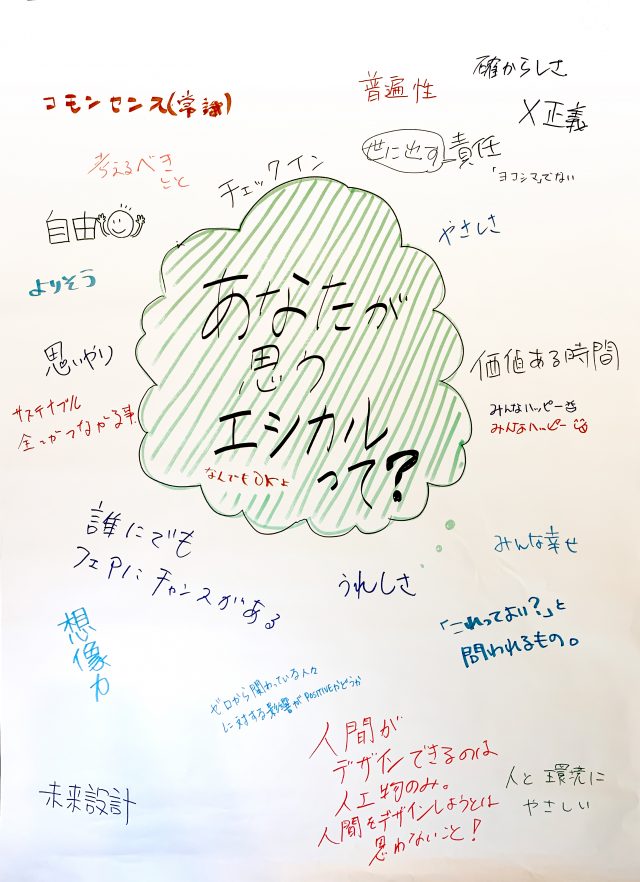 確からしさ
普遍性
コモンセンス(常識)
X正義
世に出す責任
「ヨコシマ」でない
考えるべき
こと
チェックイン
自由
やさしさ
よりそう
あなたが
思う
エシカル
って?
なんでもOKよ
思いやり
価値ある時間
サステナブル
全てがつながる事
みんなハッピー
みんなハッピー
誰にでも
フェアにチャンスがある
うれしさ
みんな幸せ
「これってよい?」と
問われるもの。
想像力
ゼロから関わっている人々
に対する影響がPOSITIVEかどうか
人間が
デザインできるのは
人工物のみ。
人間をデザインしようとは
思わないこと!
人と環境に
やさしい
未来設計